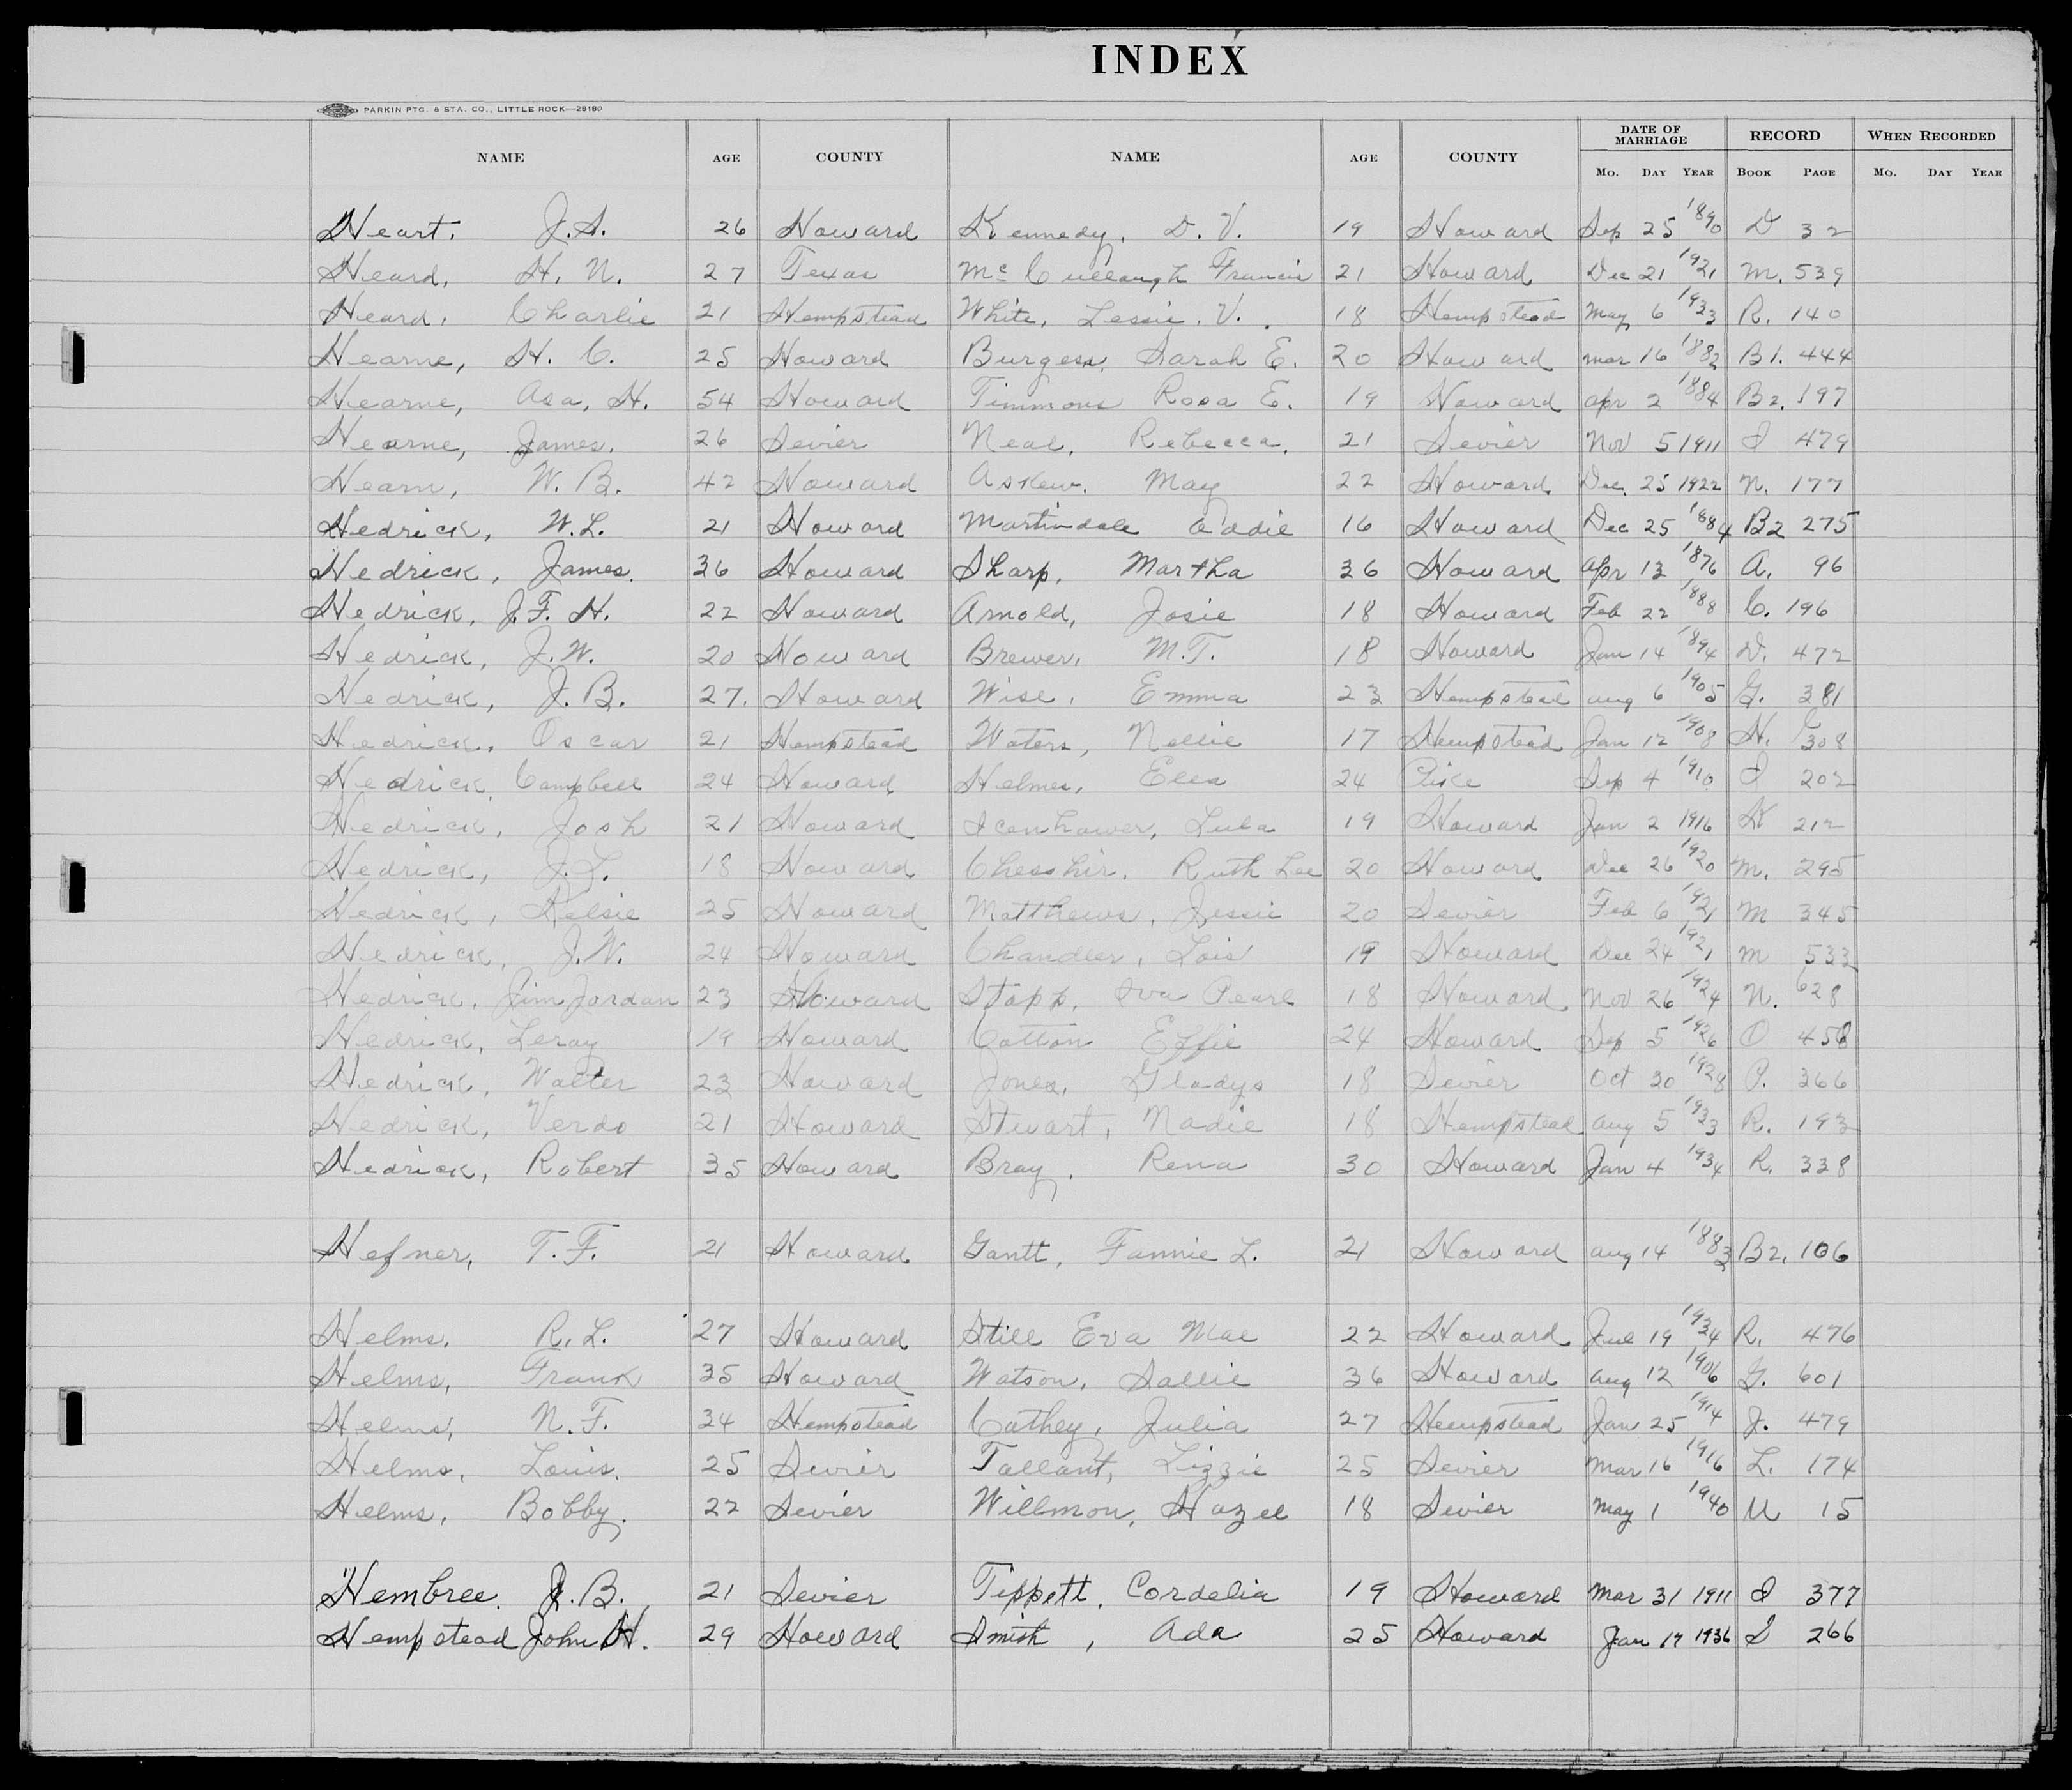 INDEX
PARKIN PTG. & STA. CO., LITTLE ROCK—28180
NAME AGE COUNTY NAME AGE COUNTY DATE OF MARRIAGE RECORD WHEN RECORDED
MO. DAY YEAR BOOK PAGE MO. DAY YEAR
Heart, J.S. 26 Howard Kennedy, D. V. 19 Howard Sep 25 1890 D 32
Heard, H. N. 27 Texas McCullaugh Francis 21 Howard Dec 21 1921 M. 539
Heard, Charlie 21 Hempstead White, Lessie. V. 18 Hempstead May 6 1933 R. 140
Hearne, H. C. 25 Howard Burgess, Sarah E. 20 Howard Mar 16 1882 B1. 444
Hearne, Asa, H. 54 Howard Timmons Rosa E. 19 Howard Apr 2 1884 B2. 197
Hearne, James. 26 Sevier Neal, Rebecca, 21 Sevier Nov 5 1911 I 479
Hearn, W. B. 42 Howard Askew, May 22 Howard Dec. 25 1922 N. 177
Hedrick, W.L. 21 Howard Martindale Addie 16 Howard Dec 25 1884 B2 275
Hedrick, James. 36 Howard Sharp, Martha 36 Howard Apr 13 1876 A. 96
Hedrick, J.F. H. 22 Howard Arnold, Josie 18 Howard Feb 22 1888 C. 196
Hedrick, J.W. 20 Howard Brewer, M.T. 18 Howard Jan 14 1894 D. 472
Hedrick, J.B. 27. Howard Wise, Emma 23 Hempstead Aug 6 1905 G. 381
Hedrick, Oscar 21 Hempstead Waters, Nellie 17 Hempstead Jan 12 1908 H. 308
Hedrick, Campbell 24 Howard Helmes, Ella 24 Pike Sep 4 1910 I 202
Hedrick, Josh 21 Howard Icenhower, Lula 19 Howard Jan 2 1916 K 212
Hedrick, J.L. 18 Howard Chesshir, Ruth Lee 20 Howard Dec 26 1920 M. 295
Hedrick, Kelsie 25 Howard Matthews, Jessie 20 Sevier Feb 6 1921 M 345
Hedrick, J.W. 24 Howard Chandler, Lois 19 Howard Dec 24 1921 M 533
Hedrick, Jim Jordan 23 Howard Stapp, Iva Pearl 18 Howard Nov 26 1924 N. 628
Hedrick, Leroy 19 Howard Cotton Effie 24 Howard Sep 5 1926 O 458
Hedrick, Walter 23 Howard Jones, Gladys 18 Sevier Oct 30 1928 P. 366
Hedrick, Verdo 21 Howard Stuart, Nadie 18 Hempstead Aug 5 1933 R. 193
Hedrick, Robert 35 Howard Bray, Rena 30 Howard Jan 4 1934 R. 338
Hefner, T. F. 21 Howard Gantt, Fannie L. 21 Howard Aug 14 1883 B2. 106
Helms, R. L. 27 Howard Still Eva Mae 22 Howard 19 1934 R. 476
Helms, Frank 35 Howard Watson, Sallie 36 Howard Aug 12 1906 G. 601
Helms, N. F. 34 Hempstead Cathey, Julia 27 Hempstead Jan 25 1914 J. 479
Helms, Louis. 25 Sevier Tallant, Lizzie 25 Sevier Mar 16 1916 L. 174
Helms, Bobby. 22 Sevier Willmon, Hazel 18 Sevier May 1 1940 U 15
Hembree. J.B. 21 Sevier Tippett, Cordelia 19 Howard Mar 31 1911 I 377
Hempstead John H. 29 Howard Smith, Ada 25 Howard Jan 1936 S 266